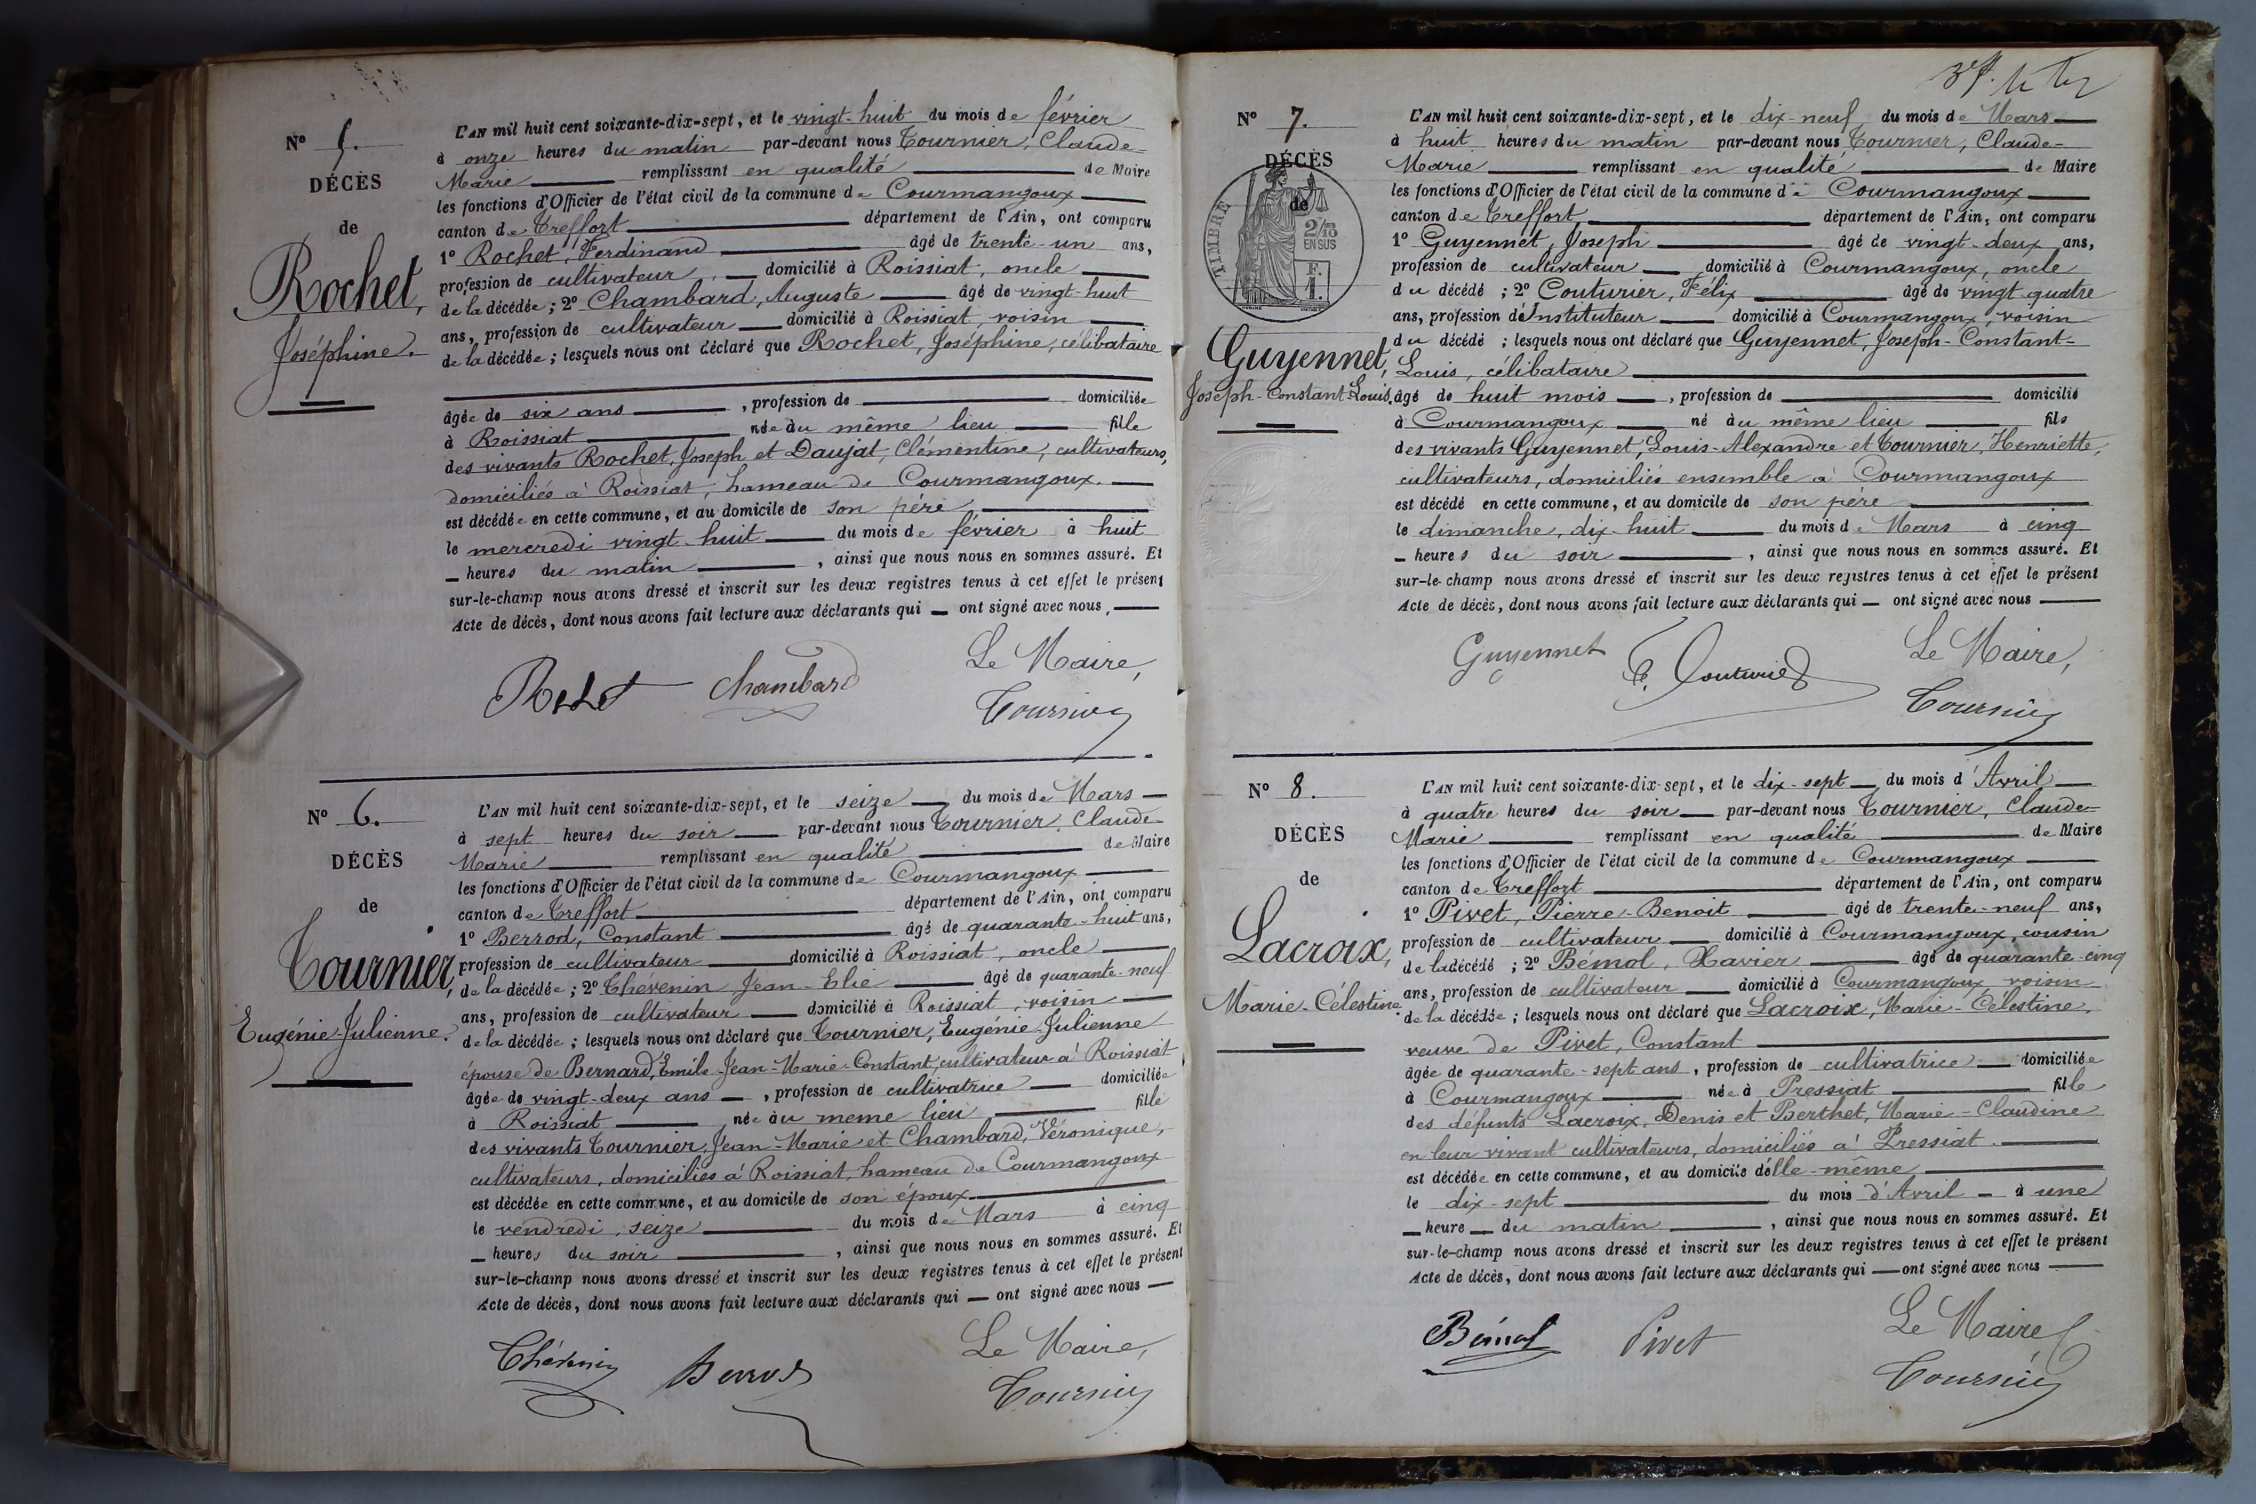 N° 5.
DÉCÈS
de
Rochet,
Joséphine.
L'AN mil huit cent soixante-dix-sept, et le vingt-huit du mois de février
à onze heures du matin par-devant nous Tournier, Claude-
Marie remplissant en qualité de Maire
les fonctions d'Officier de l'état civil de la commune de Courmangoux
canton de Treffort département de l'Ain, ont comparu
1° Rochet, Ferdinand âgé de trente-un ans,
profession de cultivateur, domicilié à Roissiat, oncle
de la décédée; 2° Chambard, Auguste âgé de vingt-huit
ans, profession de cultivateur domicilié à Roissiat, voisin
de la décédée; lesquels nous ont déclaré que Rochet, Joséphine, célibataire
âgée de six ans, profession de domiciliée
à Roissiat née au même lieu fille
des vivants Rochet, Joseph et Daujat, Clémentine, cultivateurs,
domiciliés à Roissiat, hameau de Courmangoux.
est décédée en cette commune, et au domicile de son père
le mercredi vingt-huit du mois de février à huit
heures du matin, ainsi que nous nous en sommes assuré. Et
sur-le-champ nous avons dressé et inscrit sur les deux registres tenus à cet effet le présent
Acte de décès, dont nous avons fait lecture aux déclarants qui — ont signé avec nous,
Rochet Chambard Le Maire,
Tournier
N° 6.
DÉCÈS
de
Tournier,
Eugénie-Julienne.
L'AN mil huit cent soixante-dix-sept, et le seize du mois de Mars
à sept heures du soir par-devant nous Tournier, Claude-
Marie remplissant en qualité de Maire
les fonctions d'Officier de l'état civil de la commune de Courmangoux
canton de Treffort département de l'Ain, ont comparu
1° Berrod, Constant âgé de quarante-huit ans,
profession de cultivateur domicilié à Roissiat, oncle
de la décédée; 2° Thévenin Jean-Elie âgé de quarante-neuf
ans, profession de cultivateur domicilié à Roissiat, voisin
de la décédée; lesquels nous ont déclaré que Tournier, Eugénie-Julienne
épouse de Bernard, Emile-Jean-Marie-Constant, cultivateur à Roissiat
âgée de vingt-deux ans —, profession de cultivatrice domiciliée
à Roissiat née au meme lieu fille
des vivants Tournier, Jean-Marie et Chambard, Véronique,
cultivateurs, domiciliés à Roissiat, hameau de Courmangoux
est décédée en cette commune, et au domicile de son époux
le vendredi, seize du mois de Mars à cinq
heures du soir, ainsi que nous nous en sommes assuré. Et
sur-le-champ nous avons dressé et inscrit sur les deux registres tenus à cet effet le présent
Acte de décès, dont nous avons fait lecture aux déclarants qui — ont signé avec nous
Thévenin Berrod Le Maire,
Tournier
N° 7.
DÉCÈS
de
TIMBRE
2/10
EN SUS
F.
1.
Guyennet,
Joseph-Constant-Louis.
L'AN mil huit cent soixante-dix-sept, et le dix-neuf du mois de Mars
à huit heures du matin par-devant nous Tournier, Claude-
Marie remplissant en qualité de Maire
les fonctions d'Officier de l'état civil de la commune de Courmangoux
canton de Treffort département de l'Ain, ont comparu
1° Guyennet, Joseph âgé de vingt-deux ans,
profession de cultivateur domicilié à Courmangoux, oncle
du décédé; 2° Couturier, Félix âgé de vingt quatre
ans, profession d'Instituteur domicilié à Courmangoux, voisin
du décédé; lesquels nous ont déclaré que Guyennet, Joseph-Constant-
Louis, célibataire
âgé de huit mois, profession de domicilié
à Courmangoux né au même lieu fils
des vivants Guyennet, Louis-Alexandre et Tournier, Henriette,
cultivateurs, domiciliés ensemble à Courmangoux
est décédé en cette commune, et au domicile de son père
le dimanche, dix-huit du mois de Mars à cinq
heures du soir, ainsi que nous nous en sommes assuré. Et
sur-le-champ nous avons dressé et inscrit sur les deux registres tenus à cet effet le présent
Acte de décès, dont nous avons fait lecture aux déclarants qui — ont signé avec nous
Guyennet F. Couturier Le Maire,
Tournier
N° 8.
DÉCÈS
de
Lacroix,
Marie-Célestine.
L'AN mil huit cent soixante-dix-sept, et le dix-sept du mois d'Avril
à quatre heures du soir par-devant nous Tournier, Claude-
Marie remplissant en qualité de Maire
les fonctions d'Officier de l'état civil de la commune de Courmangoux
canton de Treffort département de l'Ain, ont comparu
1° Pivet, Pierre-Benoit âgé de trente-neuf ans,
profession de cultivateur domicilié à Courmangoux, cousin
de la décédé; 2° Bémol, Xavier âgé de quarante-cinq
ans, profession de cultivateur domicilié à Courmangoux, voisin
de la décédée; lesquels nous ont déclaré que Lacroix, Marie-Célestine,
veuve de Pivet, Constant
âgée de quarante-sept ans, profession de cultivatrice domiciliée
à Courmangoux née à Pressiat fille
des défunts Lacroix, Denis et Berthet, Marie-Claudine
en leur vivant cultivateurs, domiciliés à Pressiat.
est décédée en cette commune, et au domicile d'elle-même
le dix-sept du mois d'Avril à une
heure du matin, ainsi que nous nous en sommes assuré. Et
sur-le-champ nous avons dressé et inscrit sur les deux registres tenus à cet effet le présent
Acte de décès, dont nous avons fait lecture aux déclarants qui — ont signé avec nous
Bémol Pivet Le Maire
Tournier